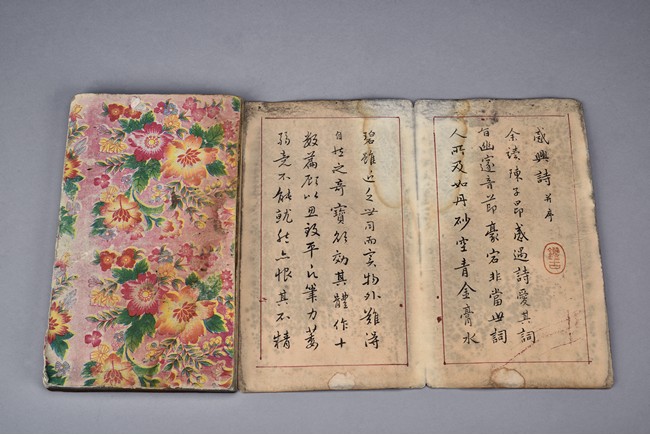 感興詩 并序
余讀陳子昂感遇詩愛其詞
旨幽邃音節豪宕非當世詞
人所及如丹砂空青金膏水
碧雖近乏世用而實物外難得
自然之奇寶欲效其體作十
數篇顧以思致平凡筆力萎
弱竟不能就然亦恨其不精